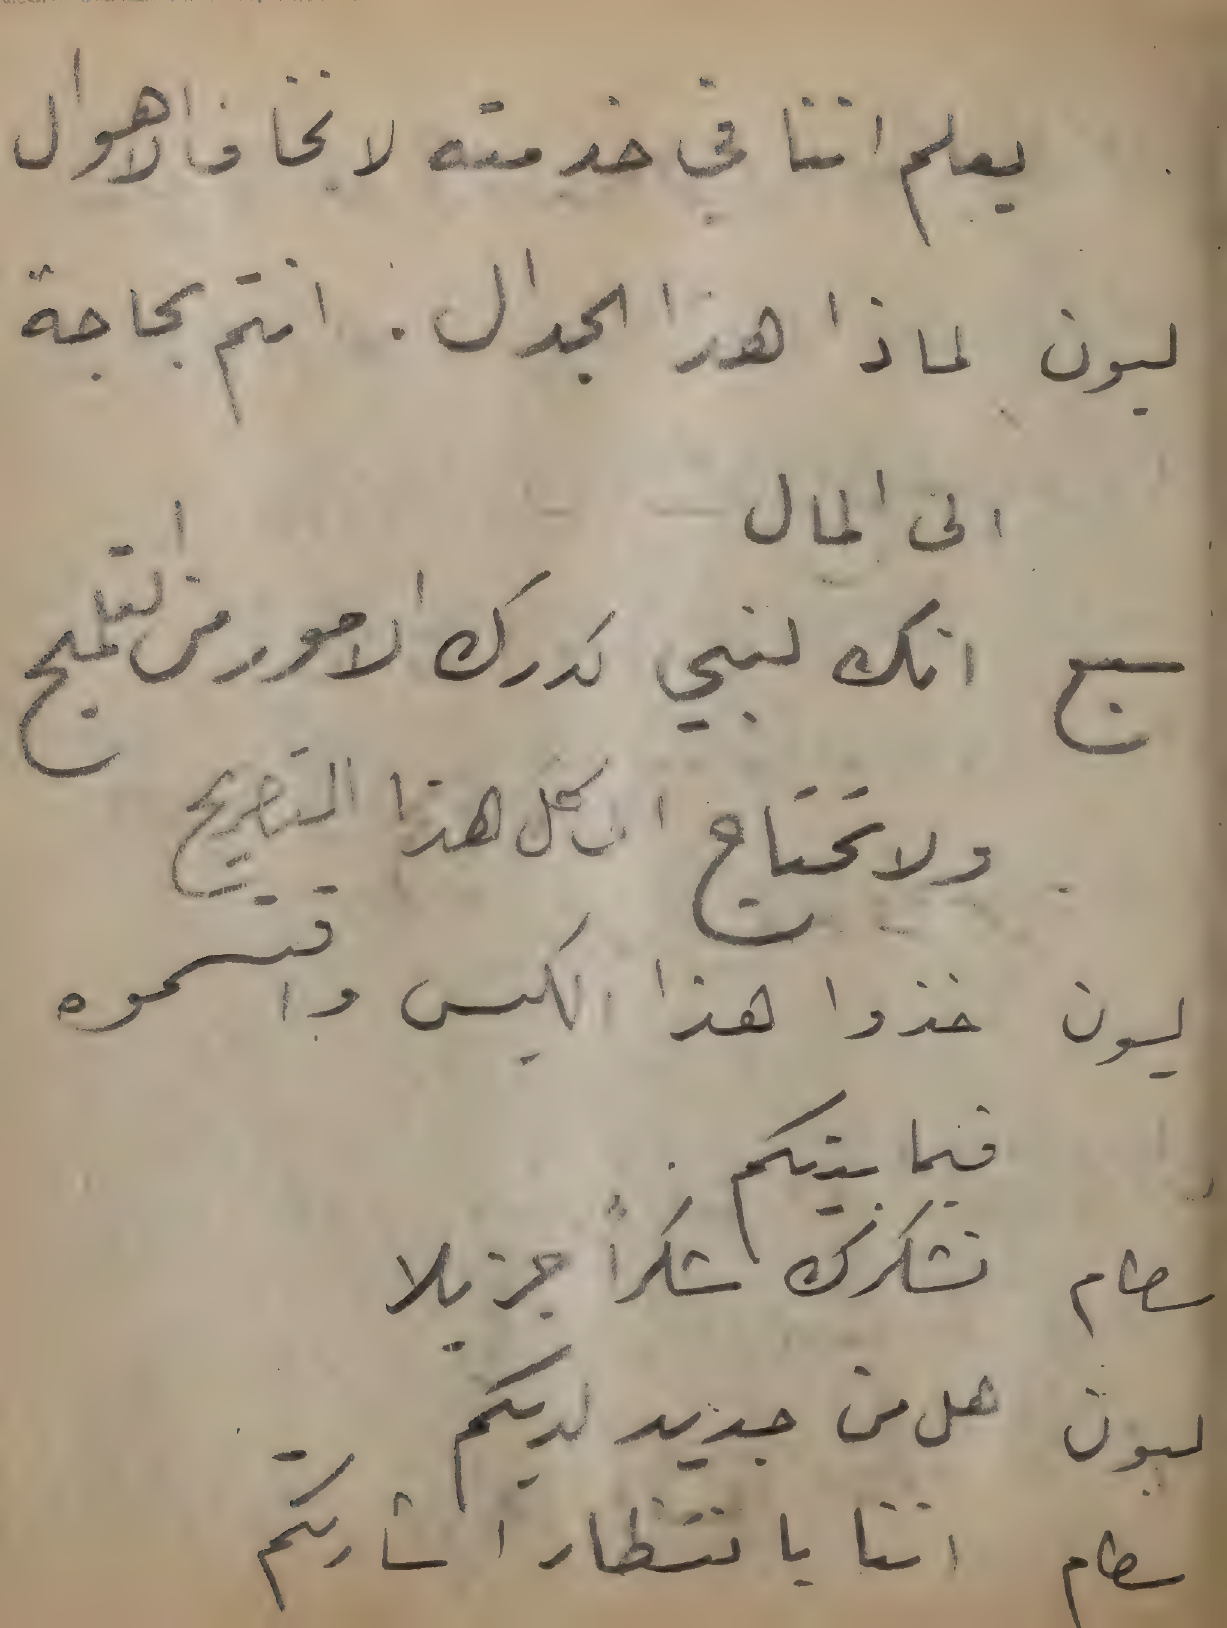 يعلم اننا في خدمته لا نخاف الاهوال
ليون لماذا هذا الجدال . انتم بحاجة
الى المال
سبع انك لنبي تدرك الامور من التلميح
ولا تحتاج الى كل هذا التصريح
ليون خذوا هذا الكيس واقتسموه
فيما بينكم .
سطام نشكرك شكراً جزيلا
ليون هل من جديد لديكم
سطام اننا بانتظار اشارتكم